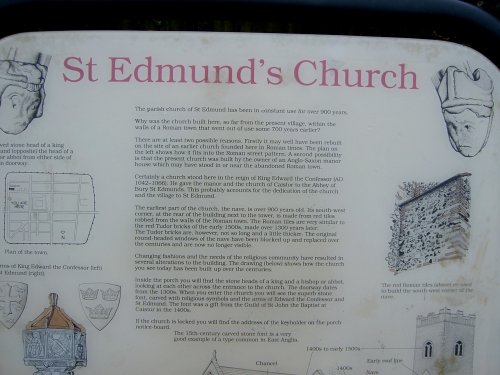 St Edmund's Church
The parish church of St Edmund has been in constant use for over 900 years.
Why was the church built here, so far from the present village, within the
walls of a Roman town that went out of use some 700 years earlier?
There are at least two possible reasons. Firstly it may well have been rebuilt
on the site of an earlier church founded here in Roman times. The plan on
the left shows how it fits into the Roman street pattern. A second possibility
is that the present church was built by the owner of an Anglo-Saxon manor
house which may have stood in or near the abandoned Roman town.
Certainly a church stood here in the reign of King Edward the Confessor (AD
1042-1066). He gave the manor and the church of Caistor to the Abbey of
Bury St Edmunds. This probably accounts for the dedication of the church
and the village to St Edmund.
The earliest part of the church, the nave, is over 900 years old. Its south-west
corner, at the rear of the building next to the tower, is made from red tiles
robbed from the walls of the Roman town. The Roman tiles are very similar to
the red Tudor bricks of the early 1500s, made over 1300 years later.
The Tudor bricks are, however, not so long and a little thicker. The original
round-headed windows of the nave have been blocked up and replaced over
the centuries and are now no longer visible.
Changing fashions and the needs of the religious community have resulted in
several alterations to the building. The drawing (below) shows how the church
you see today has been built up over the centuries.
Inside the porch you will find the stone heads of a king and a bishop or abbot,
looking at each other across the entrance to the church. The doorway dates
from the 1300s. Once you enter the church you will see the superb stone
font, carved with religious symbols and the arms of Edward the Confessor and
St Edmund. The font was a gift from the Guild of St John the Baptist at
Caistor in the 1400s.
If the church is locked you will find the address of the keyholder on the porch
notice-board.
The 15th-century carved stone font is a very
good example of a type common in East Anglia.
ved stone head of a king
and (opposite) the head of a
or abbot from either side of
doorway.
Plan of the town.
arms of King Edward the Confessor (left)
d Edmund (right)
The red Roman tiles (above) re-used
to build the south-west corner of the
nave.
1400s to early 1500s
Chancel
1400s
Early roof line
Nave